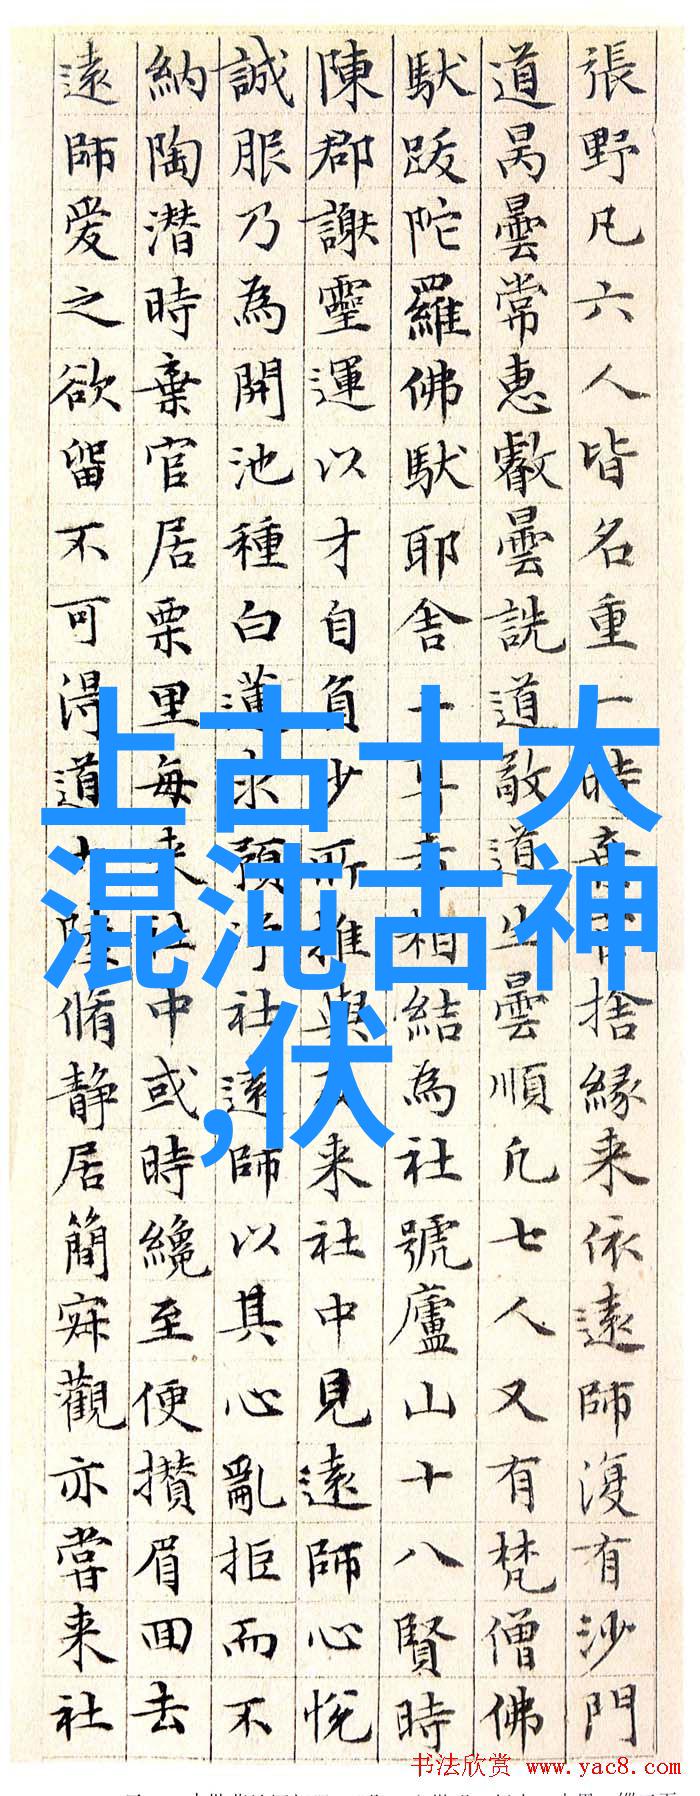 張野凡六人皆名重一時棄官捨緣来依遠師復有沙門
道昺曇常惠叡曇詵道敬道生曇順凡七人又有梵僧佛
馱跋陀羅佛馱耶舍二尊者相結為社號廬山十八賢時
陳郡謝靈運以才自負少所推與及来社中見遠師心悅
誠服乃為開池種白蓮求預淨社遠師以其心亂拒而不
納陶潜時棄官居栗里每来社中或時纔至便攢眉回去
遠師愛之欲留不可得道士陸脩靜居簡寂觀亦嘗来社
上古十大
混沌古神
,伏
书法欣赏 www.yac8.com